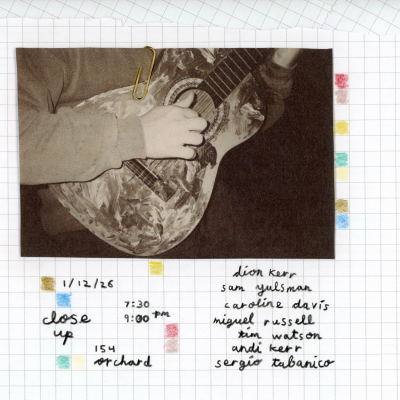 1/12/26
7:30
9:00 pm
close
up
154
orchard
dion kerr
sam yulsman
caroline davis
miguel russell
tim watson
andi kerr
sergio tabanico